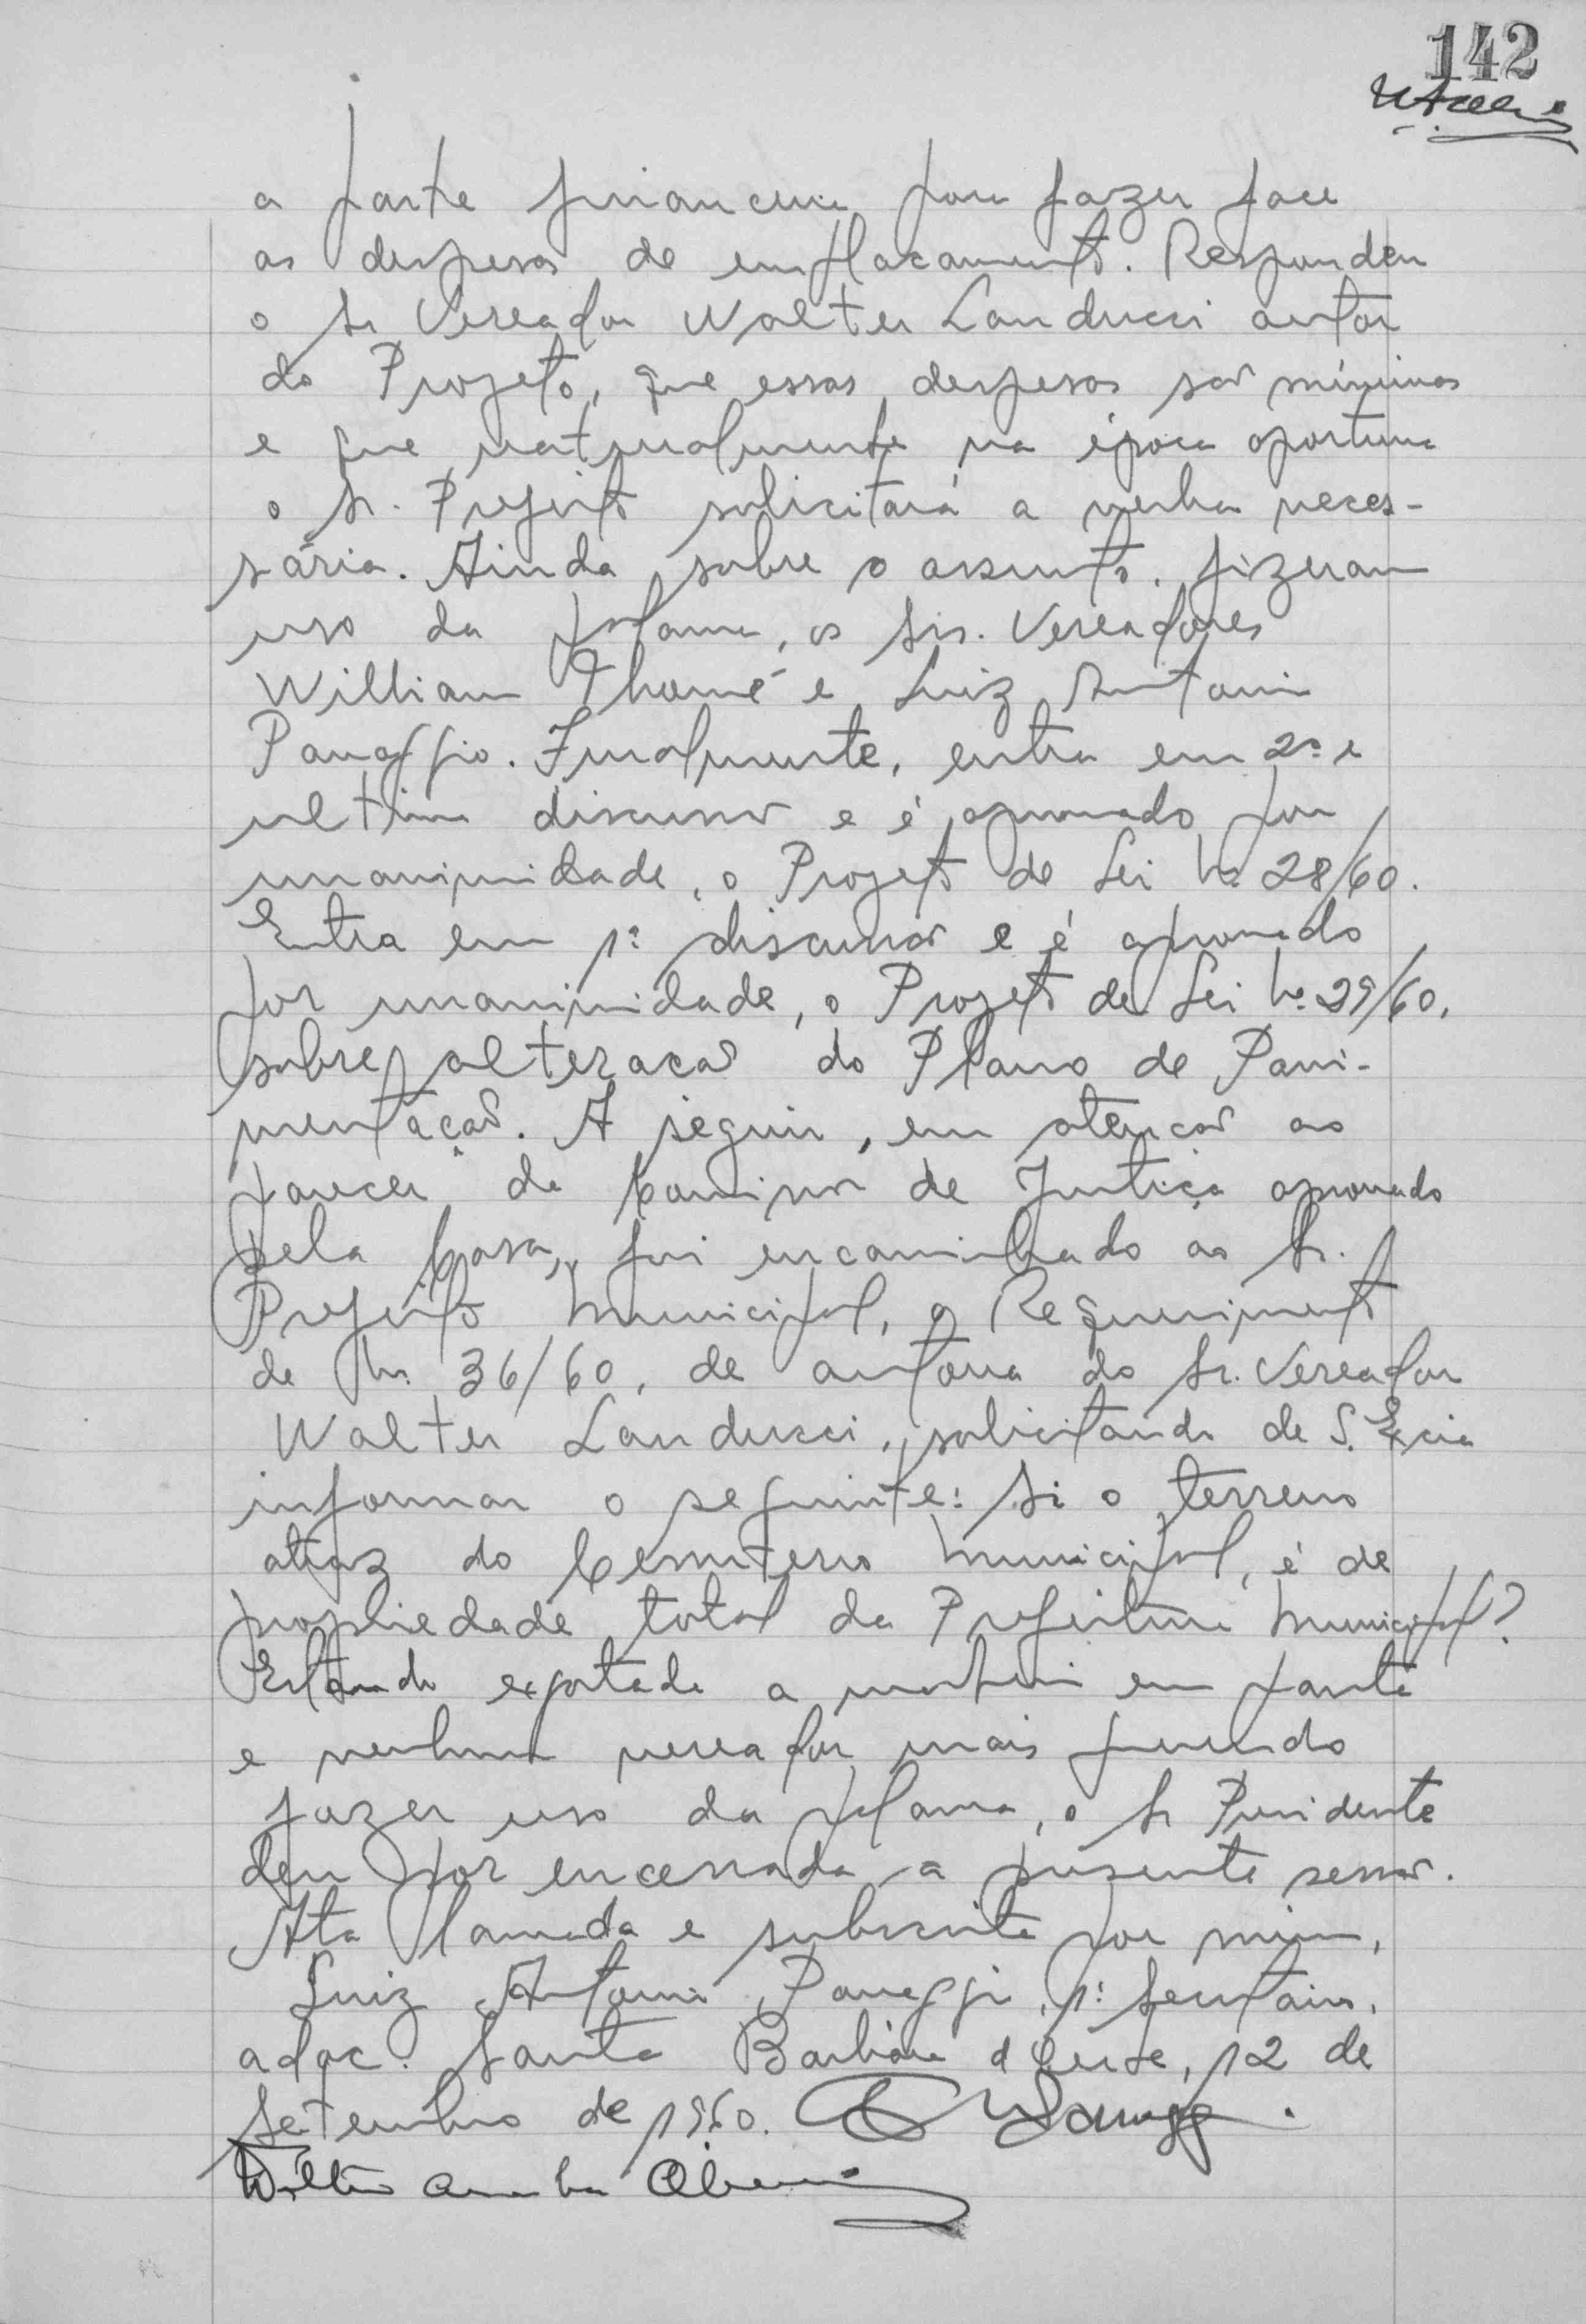 142
a parte financeira para fazer face
as despesas de emplacamento. Respondeu
o Sr Vereador Walter Landucci autor
do Projeto, que essas despesas são mínimas
e que naturalmente na época oportuna
o Sr. Prefeito solicitará a verba neces-
sária. Ainda sobre o assunto, fizeram
uso da palavra, os Srs. Vereadores
William Thomé e Luiz Antonio
Panaggio. Finalmente, entra em 2ª e
ultima discussão e é aprovado por
unanimidade, o Projeto de Lei nº 28/60.
Entra em 1ª discussão e é aprovado
por unanimidade, o Projeto de Lei nº 29/60,
sobre alteração do Plano de Pavi-
mentação. A seguir, em atenção ao
parecer da Comissão de Justiça aprovado
pela Casa, foi encaminhado ao Sr.
Prefeito Municipal, o Requerimento
de nº 36/60, de autoria do Sr. Vereador
Walter Landucci, solicitando de S. Excia
informar o seguinte: Si o terreno
atraz do Cemiterio Municipal, é de
propriedade total da Prefeitura Municipal?
Estando esgotada a materia em pauta
e nenhum vereador mais querendo
fazer uso da palavra, o Sr Presidente
deu por encerrada a presente sessão.
Ata lavrada e subscrita por mim,
Luiz Antonio Panaggio, 1º Secretario,
adoc. Santa Barbara d'Oeste, 12 de
Setembro de 1960.